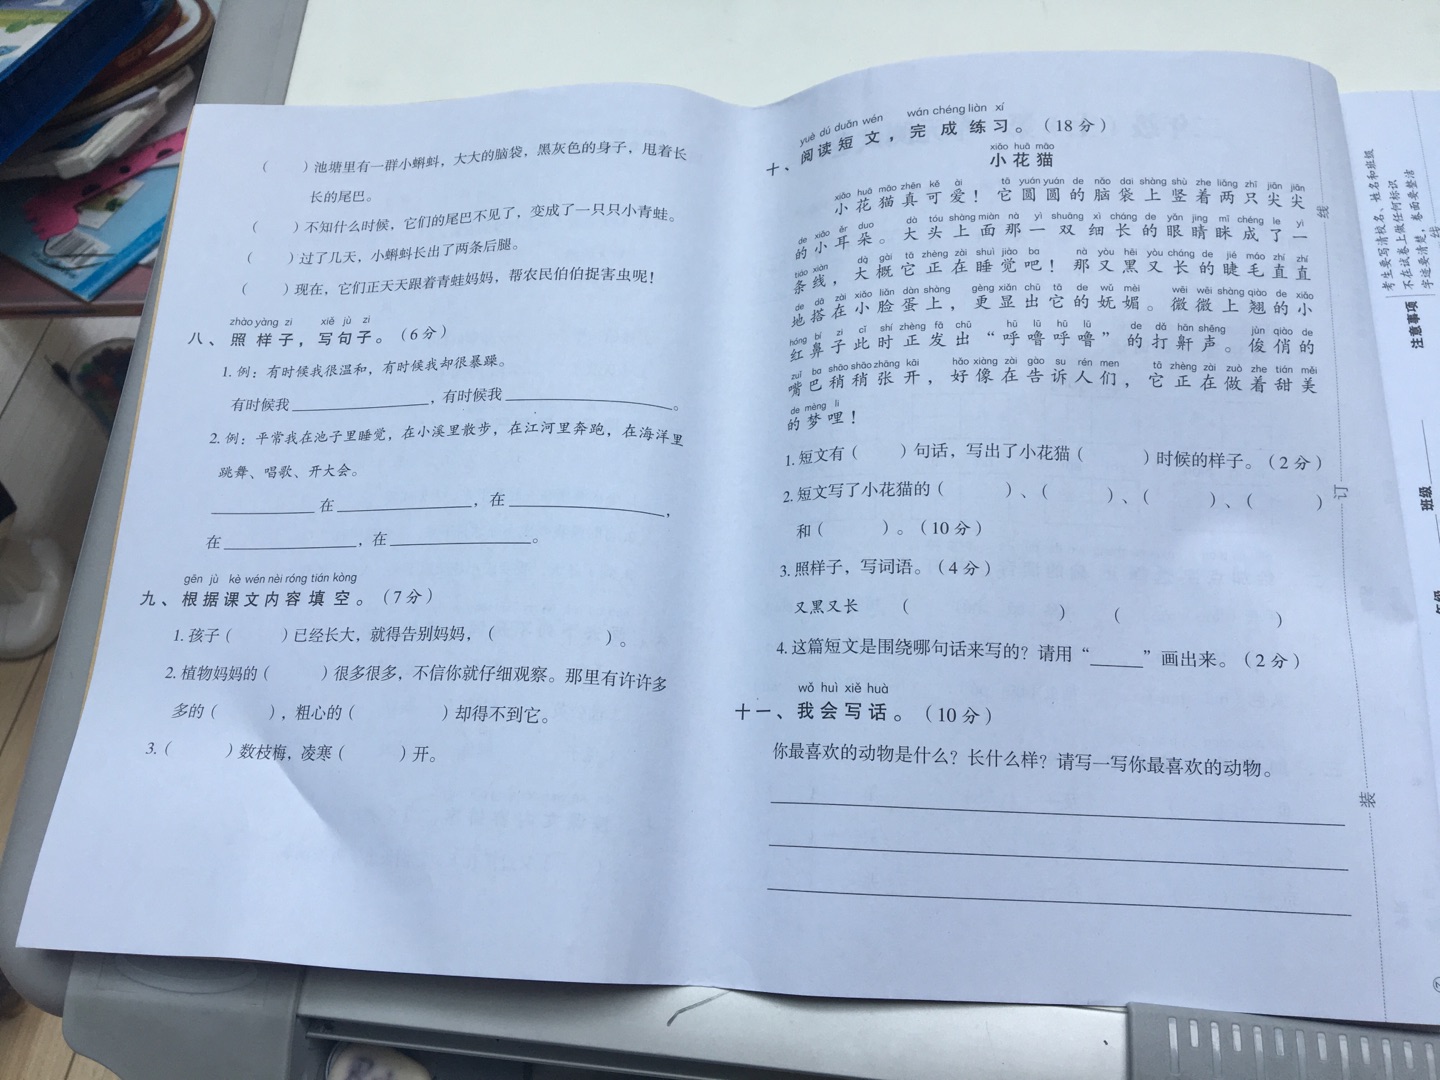 (　　)池塘里有一群小蝌蚪，大大的脑袋，黑灰色的身子，甩着长
长的尾巴。
(　　)不知什么时候，它们的尾巴不见了，变成了一只只小青蛙。
(　　)过了几天，小蝌蚪长出了两条后腿。
(　　)现在，它们正天天跟着青蛙妈妈，帮农民伯伯捉害虫呢！
zhào yàng zi xiě jù zi
八、照样子，写句子。（6分）
1. 例：有时候我很温和，有时候我却很暴躁。
有时候我______________，有时候我______________。
2. 例：平常我在池子里睡觉，在小溪里散步，在江河里奔跑，在海洋里
跳舞、唱歌、开大会。
__________在______________，在______________，
在______________，在______________。
gēn jù kè wén nèi róng tián kòng
九、根据课文内容填空。（7分）
1. 孩子（　　）已经长大，就得告别妈妈，（　　　　）。
2. 植物妈妈的（　　）很多很多，不信你就仔细观察。那里有许许多
多的（　　），粗心的（　　　）却得不到它。
3.（　　）数枝梅，凌寒（　　）开。
yuè dú duǎn wén wán chéng liàn xí
十、阅读短文，完成练习。（18分）
xiǎo huā māo
小花猫
xiǎo huā māo zhēn kě ài tā yuán yuán de nǎo dai shàng shù zhe liǎng zhī jiān jiān
小花猫真可爱！它圆圆的脑袋上竖着两只尖尖
de xiǎo ěr duo dà tóu shàng miàn nà yì shuāng xì cháng de yǎn jing mī chéng le yì
的小耳朵。大头上面那一双细长的眼睛眯成了一
tiáo xiàn dà gài tā zhèng zài shuì jiào ba nà yòu hēi yòu cháng de jié máo zhí zhí
条线，大概它正在睡觉吧！那又黑又长的睫毛直直
de dā zài xiǎo liǎn dàn shàng gèng xiǎn chū tā de wǔ mèi wēi wēi shàng qiào de xiǎo
地搭在小脸蛋上，更显出它的妩媚。微微上翘的小
hóng bí zi cǐ shí zhèng fā chū hū lū hū lū de dǎ hān shēng jùn qiào de
红鼻子此时正发出“呼噜呼噜”的打鼾声。俊俏的
zuǐ ba shāo shāo zhāng kāi hǎo xiàng zài gào su rén men tā zhèng zài zuò zhe tián měi
嘴巴稍稍张开，好像在告诉人们，它正在做着甜美
de mèng li
的梦哩！
1. 短文有（　　）句话，写出了小花猫（　　　）时候的样子。（2分）
2. 短文写了小花猫的（　　　）、（　　　）、（　　　）、（　　　）
和（　　　）。（10分）
3. 照样子，写词语。（4分）
又黑又长　（　　　　　　）　（　　　　　　）
4. 这篇短文是围绕哪句话来写的？请用“______”画出来。（2分）
wǒ huì xiě huà
十一、我会写话。（10分）
你最喜欢的动物是什么？长什么样？请写一写你最喜欢的动物。
线
订
装
考生要写清校名、姓名和班级
不在试卷上做任何标识
字迹要清楚，卷面要整洁
注意事项
线
班级